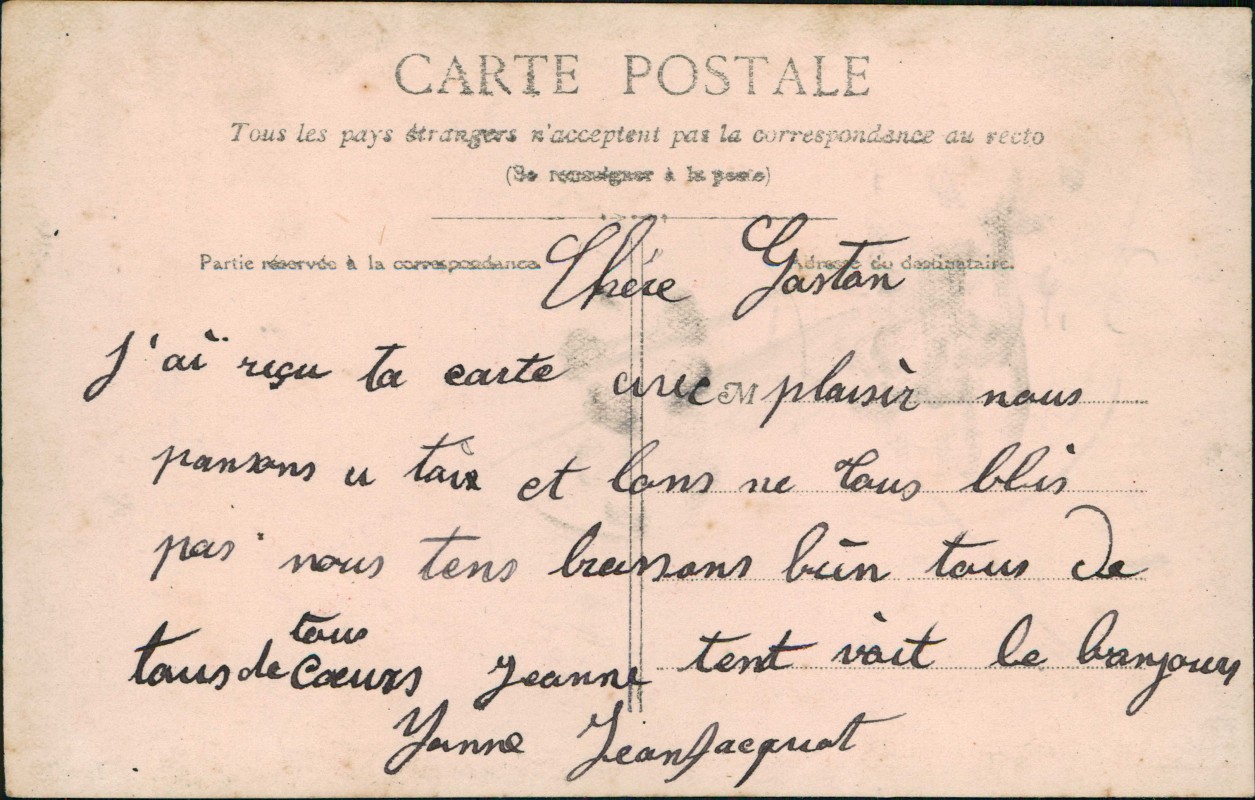 CARTE POSTALE
Tous les pays étrangers n'acceptent pas la correspondance au recto
(Se renseigner à la poste)
Partie réservée à la correspondance. Adresse du destinataire.
Chére Gastan
J'ai reçu ta carte avec M plaisir nous
pansons a toix et lons ne tous blis
pas nous tens brassons bien tous de
tous
tous de Cœurs Jeanne tent voit le banjour
Yanne Jean Jacquot